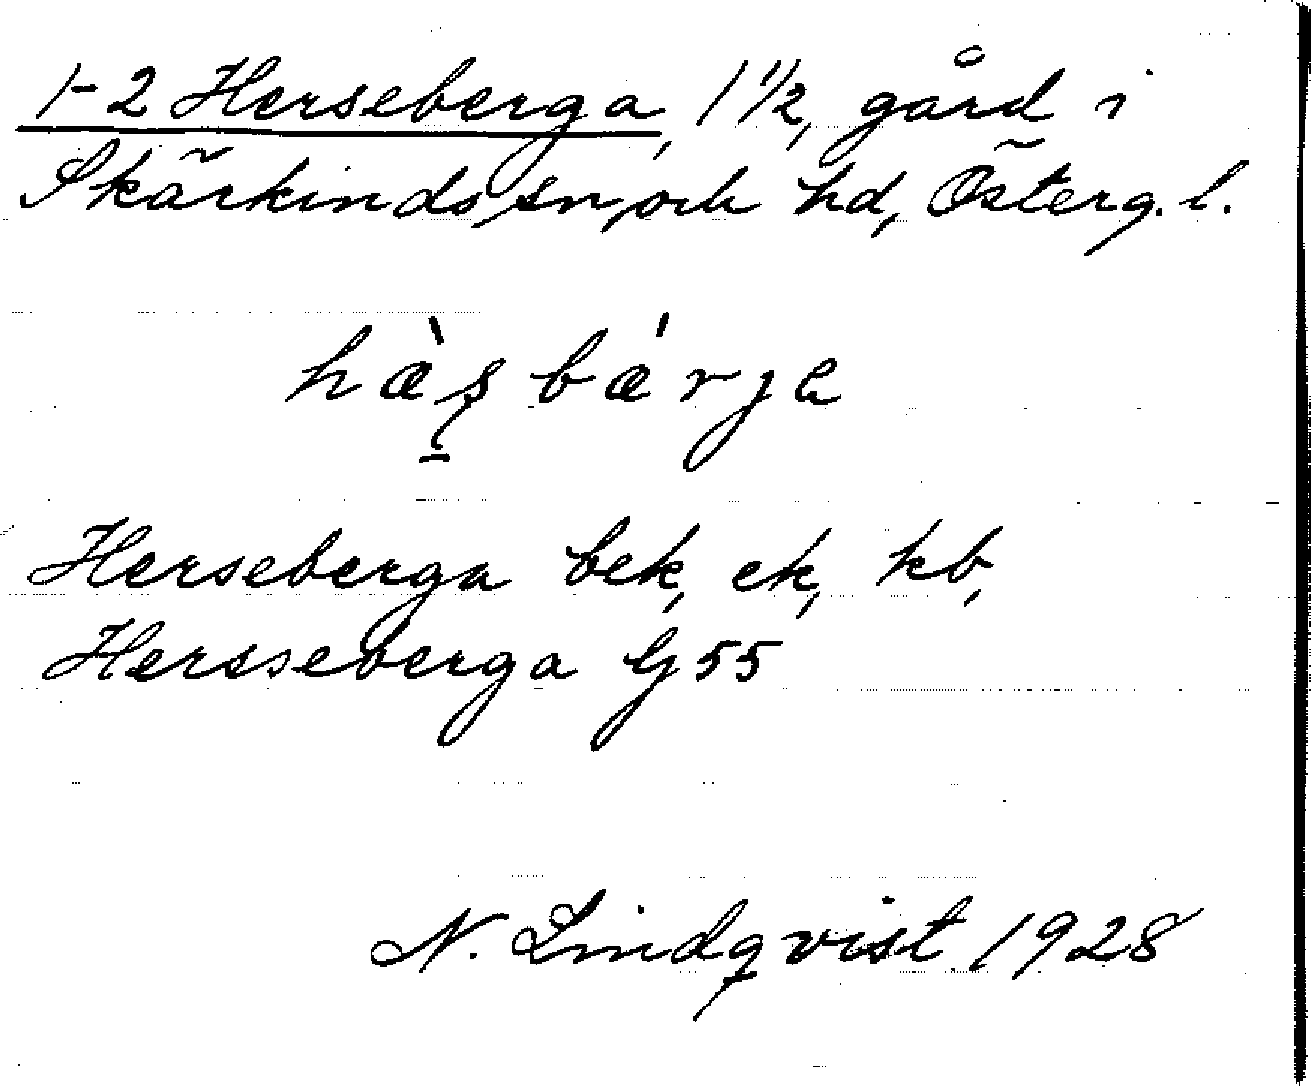 1-2 Herseberga, 1 1/2, gård i
Skärkinds sn, och hd, Österg. l.
hæ̀ʂbǽrjа
Herseberga bek, ek, kb,
Hersseberga G 55
N. Lindqvist 1928